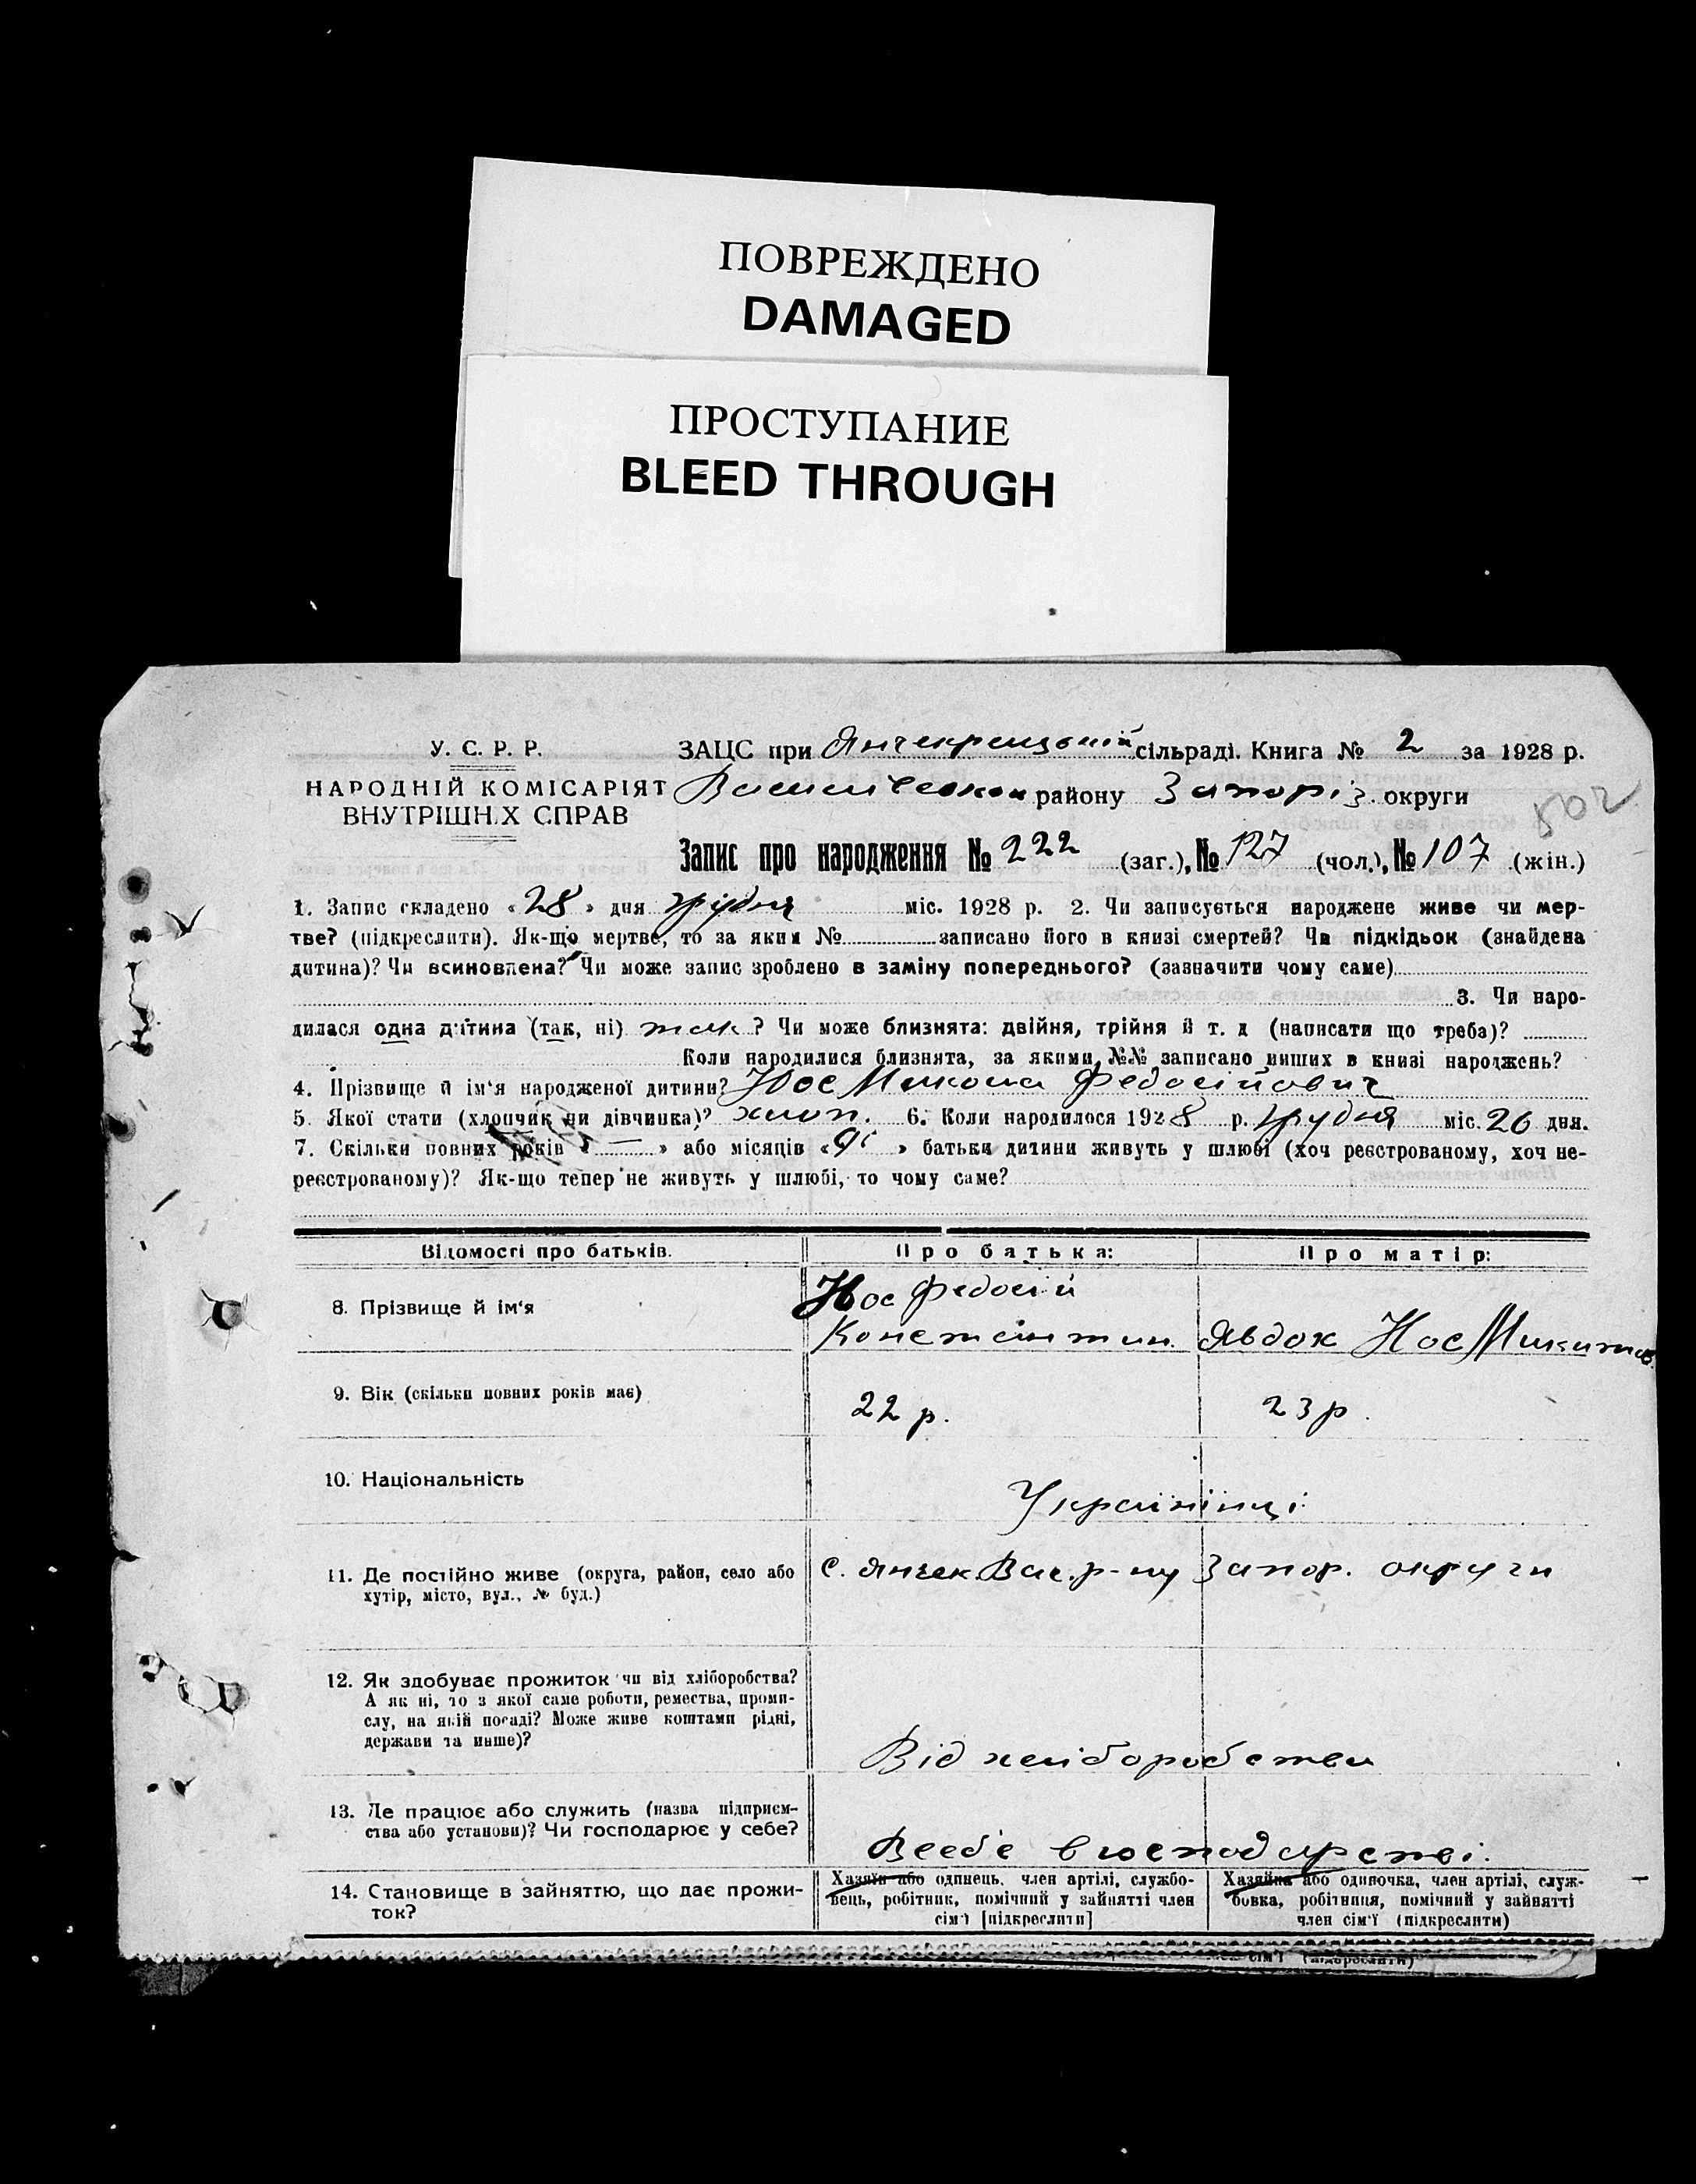 ПОВРЕЖДЕНО
DAMAGED
ПРОСТУПАНИЕ
BLEED THROUGH
У. С. Р. Р.
НАРОДНІЙ КОМІСАРІЯТ
ВНУТРІШНИХ СПРАВ
ЗАЦС при Янчекрецькій сільраді. Книга № 2 за 1928 р.
Василівськ району Запоріз. округи
502
Запис про народження № 222 (заг.), № 127 (чол.), № 107 (жін.)
1. Запис складено «28» дня грудня міс. 1928 р. 2. Чи записується народжене живе чи мер-
тве? (підкреслити). Як-що мертве, то за яким № записано його в книзі смертей? Чи підкідьок (знайдена
дитина)? Чи всиновлена? Чи може запис зроблено в заміну попереднього? (зазначити чому саме)
3. Чи наро-
дилася одна дитина (так, ні) так ? Чи може близнята: двійня, трійня й т. д (написати що треба)?
Коли народилися близнята, за якими №№ записано инших в книзі народжень?
4. Прізвище й ім'я народженої дитини? Нос Микола Федосійович
5. Якої стати (хлопчик чи дівчинка)? хлоп. 6. Коли народилося 1928 р. грудня міс. 26 дня.
7. Скільки повних років « — » або місяців « » батьки дитини живуть у шлюбі (хоч реєстрованому, хоч не-
реєстрованому)? Як-що тепер не живуть у шлюбі, то чому саме?
Відомості про батьків. Про батька: Про матір:
8. Прізвище й ім'я Нос Федосій
Констянтин. Явдок Нос Микитов.
9. Вік (скільки повних років має) 22 р. 23 р.
10. Національність Українінці
11. Де постійно живе (округа, район, село або
хутір, місто, вул., № буд.)
с. Янчек. Вас. р-ну Запор. округи
12. Як здобуває прожиток чи від хліборобства?
А як ні, то з якої саме роботи, ремества, проми-
слу, на якій посаді? Може живе коштами рідні,
держави та инше)?
Від хліборобства
13. Де працює або служить (назва підприєм-
ства або установи)? Чи господарює у себе?
Всебе в господарстві.
14. Становище в зайняттю, що дає прожи-
ток?
Хазяїн або одинець, член артілі, службо-
вець, робітник, помічний у зайнятті член
сім'ї [підкреслити]
Хазяйка або одиночка, член артілі, служ-
бовка, робітниця, помічний у зайнятті
член сім'ї (підкреслити)
сім'ї (підкреслити)